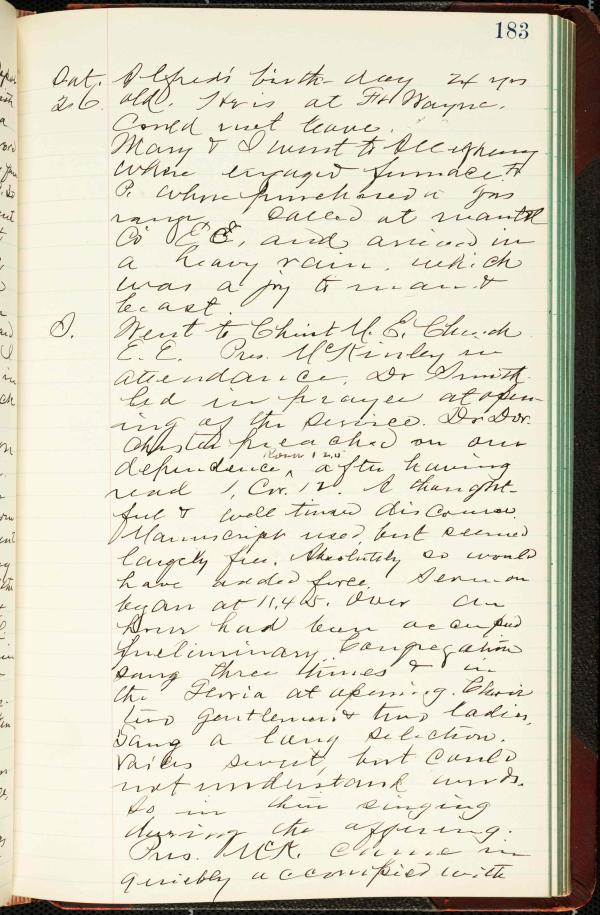 183
Sat. Alfred's birth-day 24 yrs
26. old. He is at Ft Wayne.
Could not leave.
Mary & I went to Allegheny
where engaged furnace, to
P. where purchased a gas
range, called at mantel
Co E E, and arrived in
a heavy rain, which
was a joy to man &
beast.
S. Went to Christ M. E. Church
E. E. Pres. McKinley in
attendance. Dr Smith
led in prayer at open-
ing of the service. Dr Dor-
chester preached on our
Rom 12.5
dependence, after having
read 1, Cor. 12. A thought-
ful & well timed discourse.
Manuscript used, but seemed
largely free. Absolutely so would
have added force. Sermon
began at 11.45. Over an
hour had been occupied
preliminary. Congregation
sang three times & in
the Gloria at opening. Choir
two gentlemen & two ladies,
sang a long selection.
Voices sweet, but could
not understand words.
So in their singing
during the offering.
Pres. McK. came in
quietly accompied with